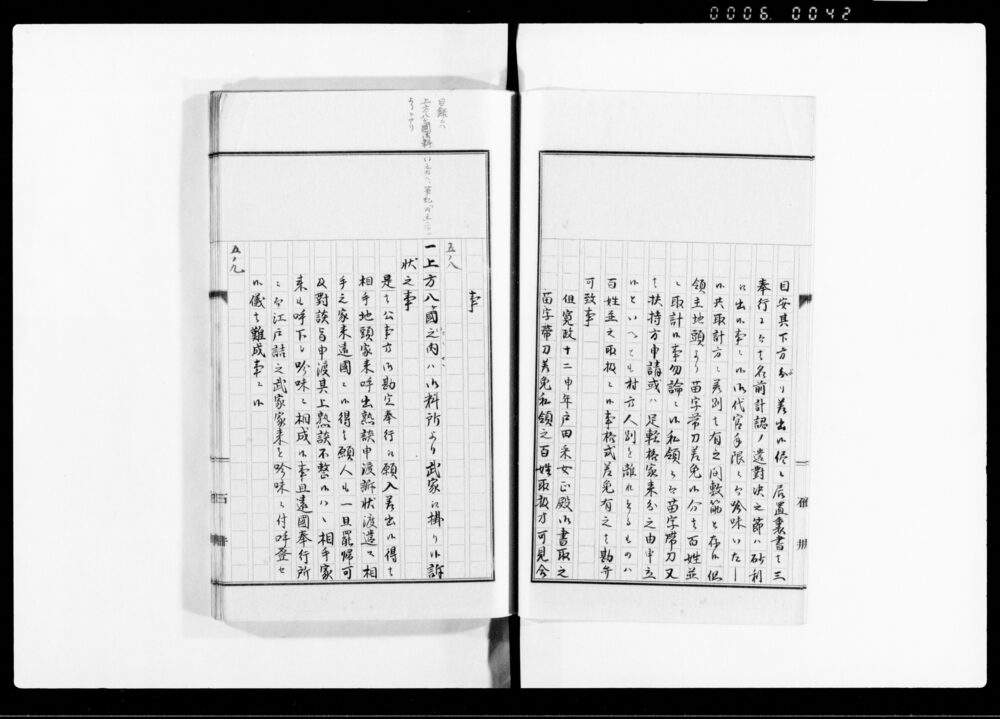 0006. 0042
目安其下方ゟり差出候侭ニ居置裏書ハ三
奉行ニ而ハ名前計認ノ遣対決之節ハ砂利
ニ出候事ニ候御代官手限ニ而吟味いたし
候共取計方ニ差別ハ有之間敷筋と存候但
領主地頭より苗字帯刀差免候分ハ百姓並
ニ取計候事勿論ニ候私領ニ而苗字帯刀又
ハ扶持方申請或ハ足軽格家来分之由申立
候といへとも村方人別を離れさるものハ
百姓並之取扱ニ候事格式差免有之ハ勘弁
可致事
但寛政十二申年戸田采女正殿御書取之
苗字帯刀差免私領之百姓取扱方可見合
事
五ノ八
一上方八ヶ國之内ハ御料所より武家江掛り候訴
状之事
是ハ公事方御勘定奉行江願入差出候得ハ
相手地頭家来呼出熟談申渡訴状渡遣ス相
手之家来遠國ニ候得ハ願人も一旦罷帰可
及對談旨申渡其上熟談不整候ハヽ相手家
来も呼下し吟味ニ相成候事且遠國奉行所
ニ而江戸詰之武家家来を吟味ニ付呼登せ
候儀ハ難成事ニ候
五ノ九
目録ニハ
上方八ヶ國御料
とあり